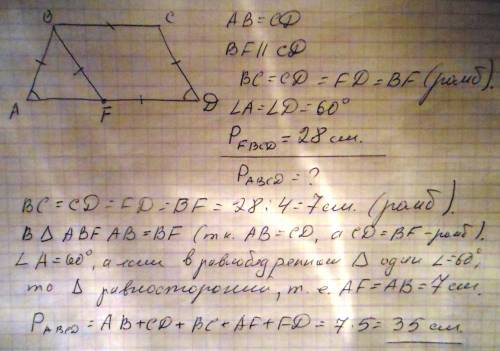 B C
A F D
AB = CD
BF || CD
BC = CD = FD = BF (ромб)
∠A = ∠D = 60°
P_FBCD = 28 см.
P_ABCD = ?
BC = CD = FD = BF = 28 : 4 = 7 см. (ромб).
В Δ ABF AB = BF (т.к. AB = CD, а CD = BF - ромб).
∠A = 60°, а если в равнобедренном Δ один ∠ = 60°,
то Δ равносторонний, т.е. AF = AB = 7 см.
P_ABCD = AB + CD + BC + AF + FD = 7 · 5 = 35 см.